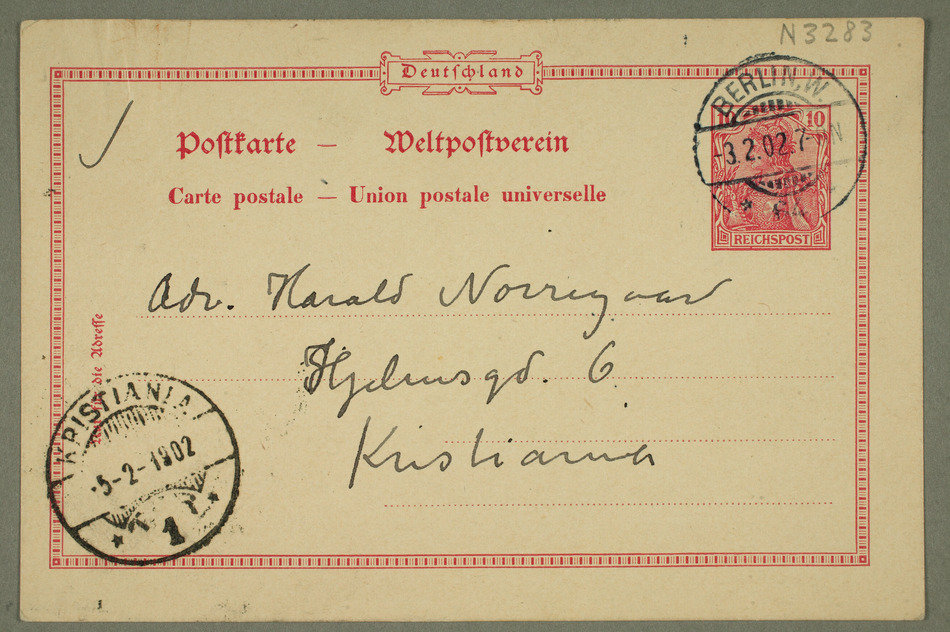 N3283
Deutſchland
Poſtkarte — Weltpoſtverein
Carte postale — Union postale universelle
BERLIN.W
-3.2.02.7-
10 10
REICHSPOST
Adv. Harald Norregaard
Hjelmsgd. 6
Kristiania
die Adreſſe
KRISTIANIA
-5-2-1902
1